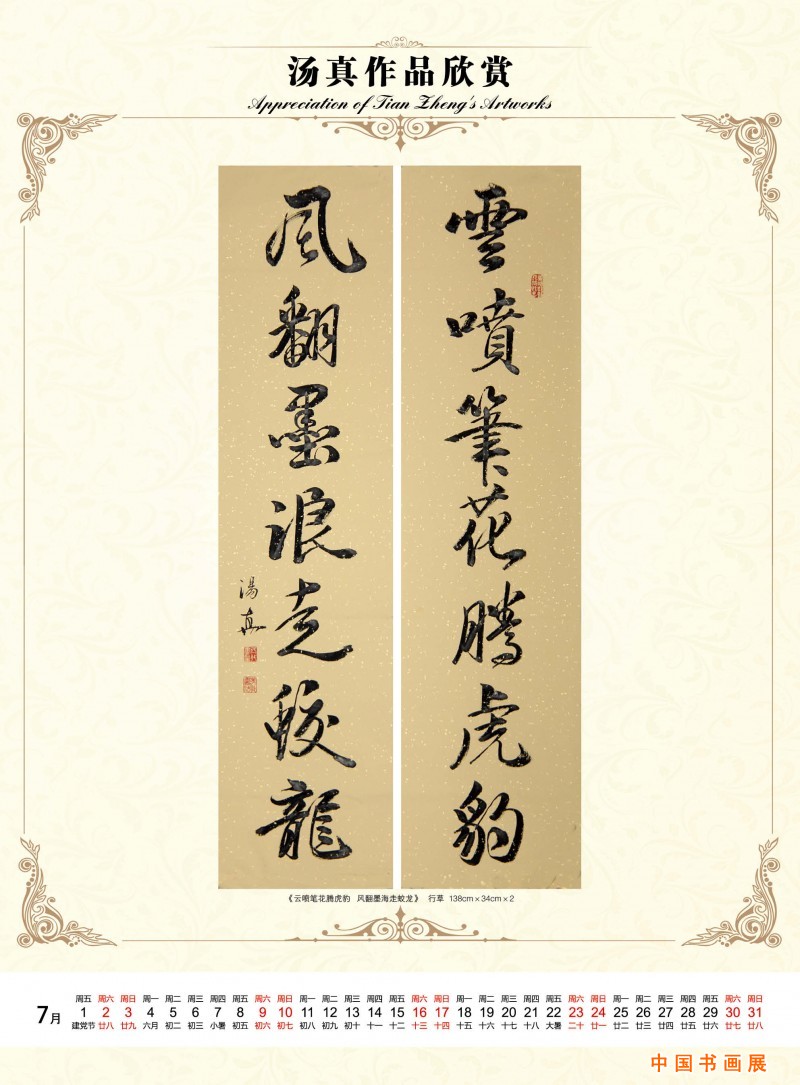 汤真作品欣赏
Appreciation of Tian Zheng's Artworks
雲噴筆花腾虎豹
風翻墨浪走蛟龍
湯真
《云喷笔花腾虎豹 风翻墨海走蛟龙》 行草 138cm×34cm×2
7月
周五 周六 周日 周一 周二 周三 周四 周五 周六 周日 周一 周二 周三 周四 周五 周六 周日 周一 周二 周三 周四 周五 周六 周日 周一 周二 周三 周四 周五 周六 周日
1 2 3 4 5 6 7 8 9 10 11 12 13 14 15 16 17 18 19 20 21 22 23 24 25 26 27 28 29 30 31
建党节 廿八 廿九 六月 初二 初三 小暑 初五 初六 初七 初八 初九 初十 十一 十二 十三 十四 十五 十六 十七 十八 大暑 二十 廿一 廿二 廿三 廿四 廿五 廿六 廿七 廿八
中国书画展